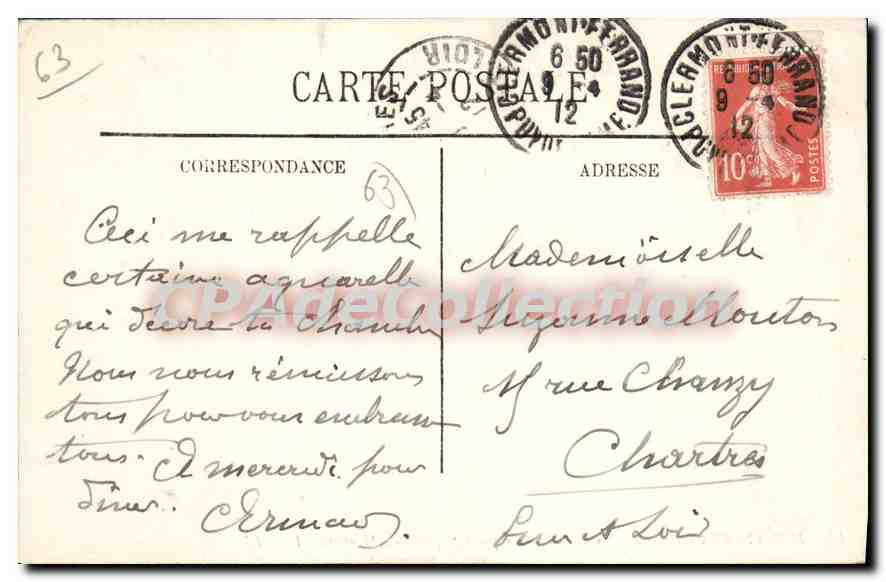 63
CARTE POSTALE
LOIR
CLERMONT-FERRAND
6 50
9 -4
12
PUY DE DOME
CLERMONT-FERRAND
6 50
9 -4
12
PUY
10c
POSTES
CORRESPONDANCE
ADRESSE
63
Ceci me rappelle
certaine aquarelle
qui décore ta chambre
Nous nous réunissons
tous pour vous embrasser
tous. A mercredi pour
dîner.
Mademoiselle
Suzanne Mouton
rue Chanzy
Chartres
Eure et Loir
CPAdeCollection